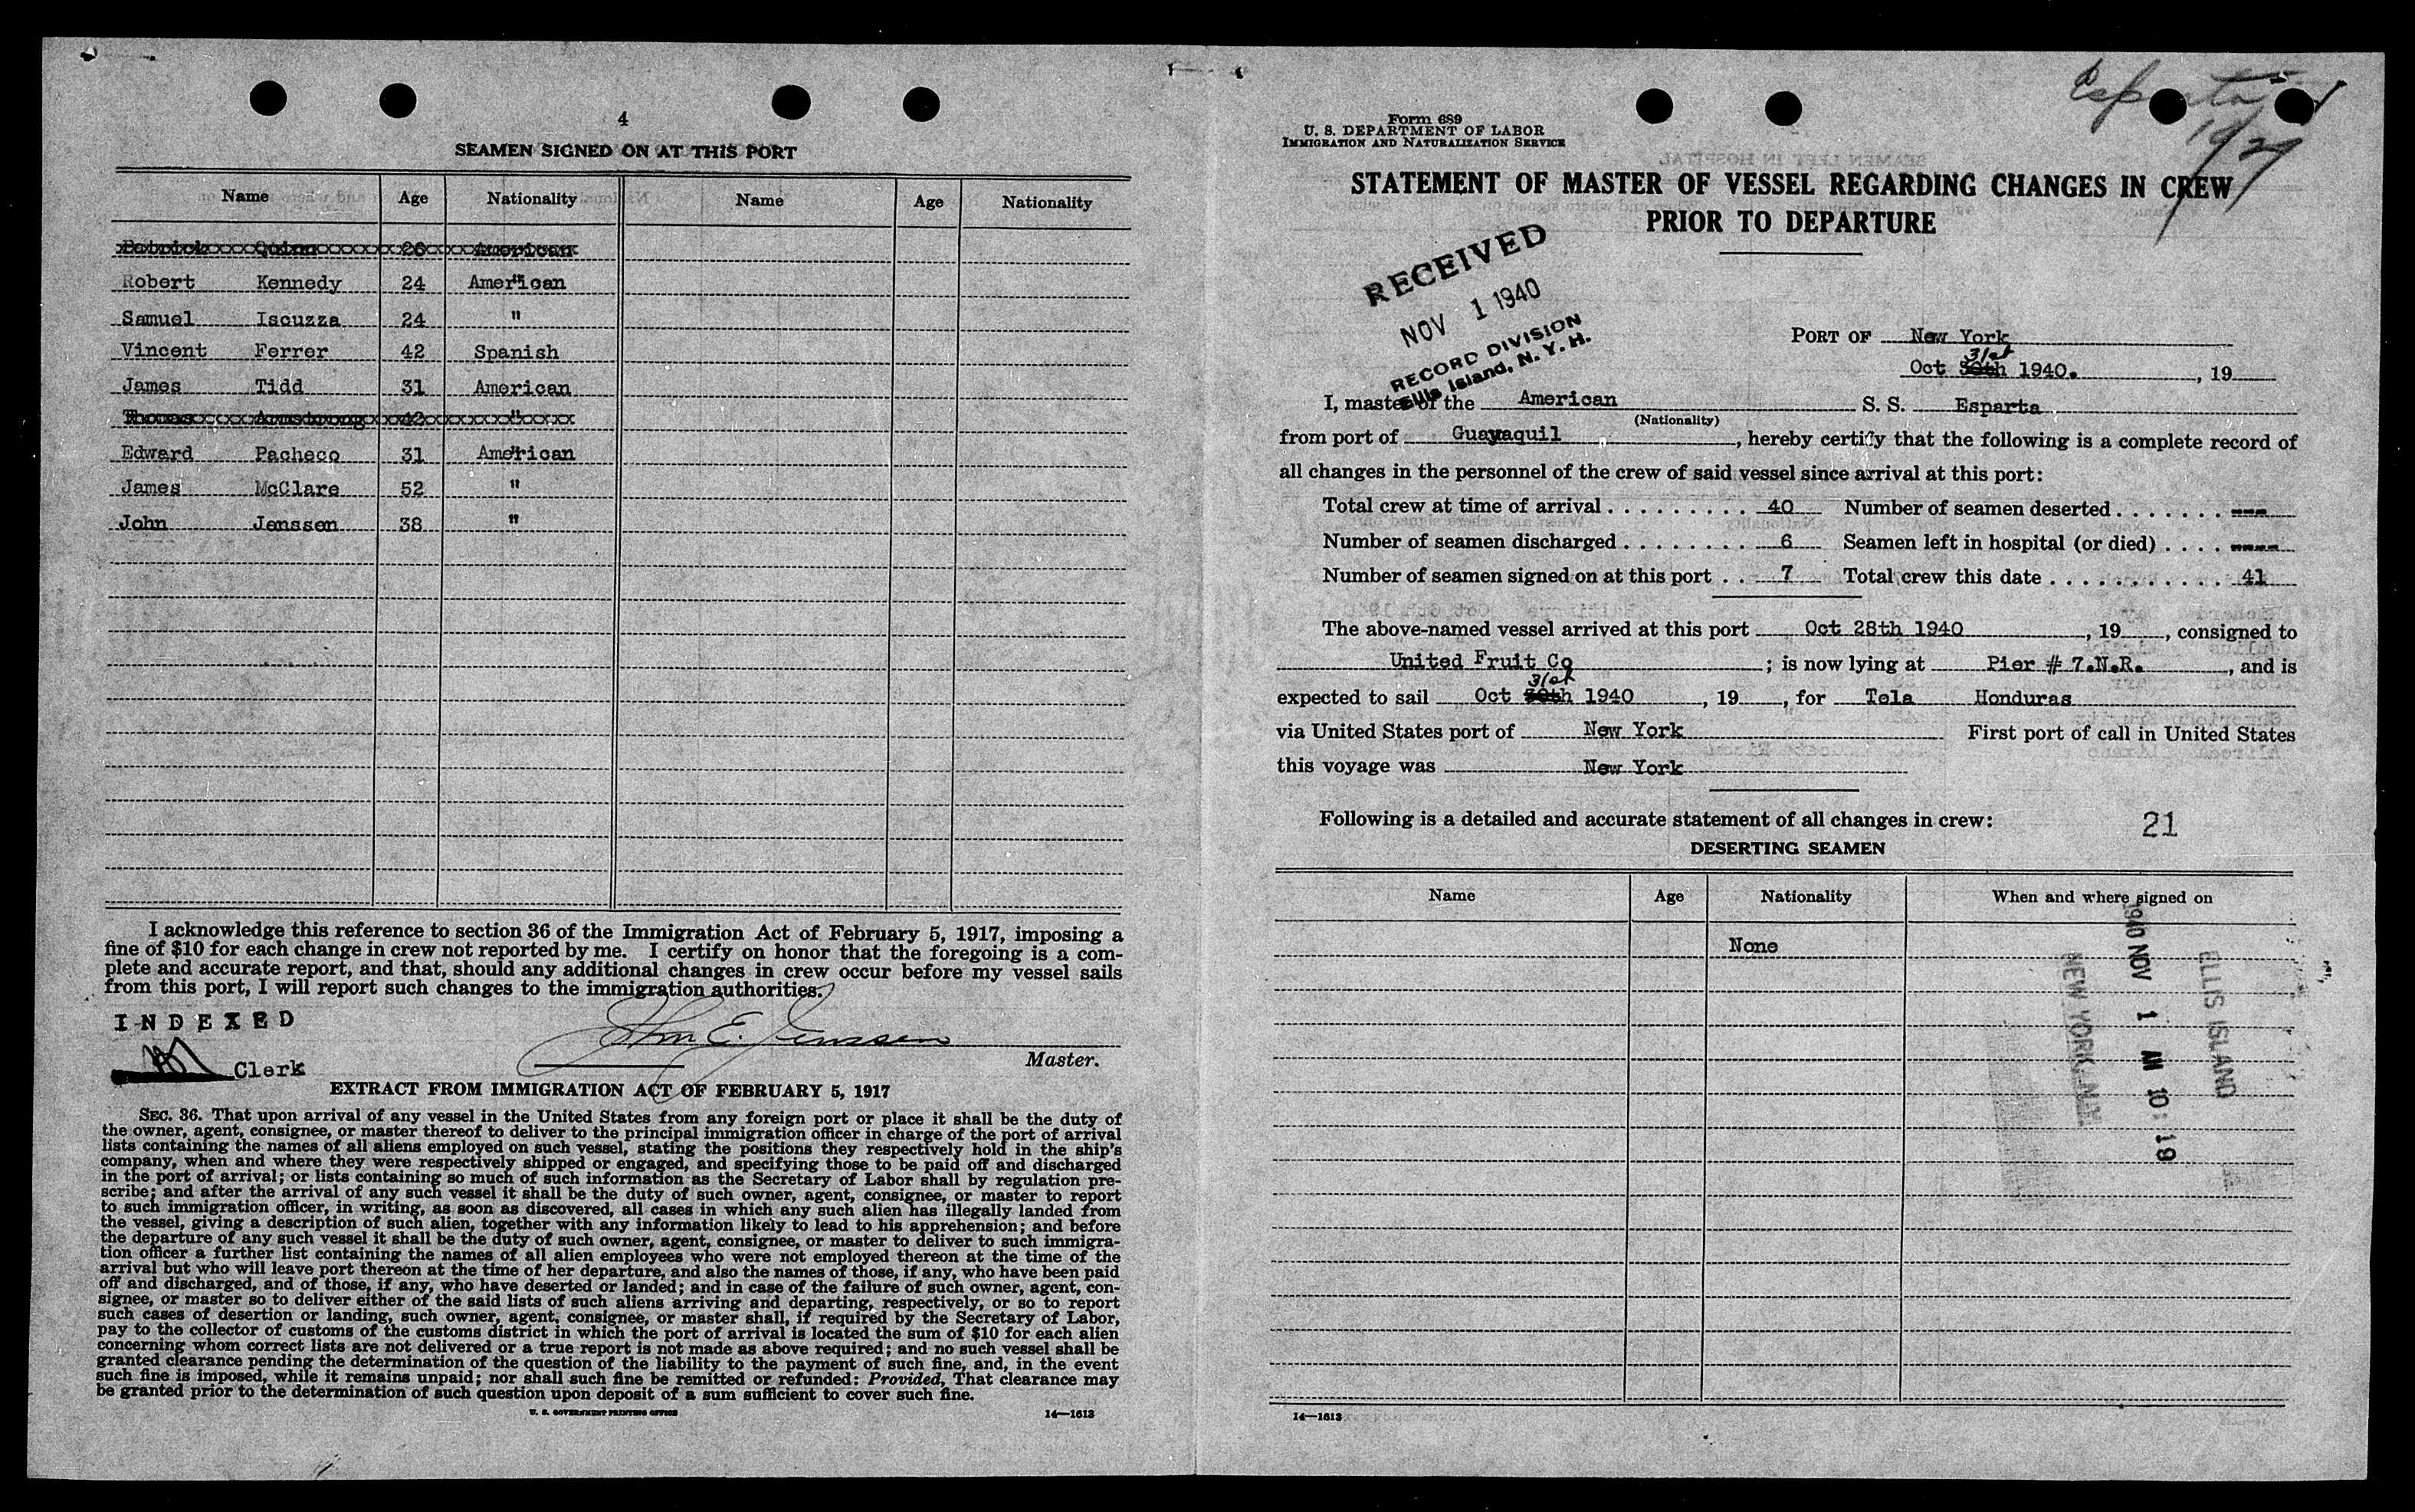 4
SEAMEN SIGNED ON AT THIS PORT
Name Age Nationality Name Age Nationality
Patrick Quinn 26 American
Robert Kennedy 24 American
Samuel Iscuzza 24 "
Vincent Ferrer 42 Spanish
James Tidd 31 American
Thomas Armstrong 42 "
Edward Pacheco 31 American
James McClare 52 "
John Jenssen 38 "
I acknowledge this reference to section 36 of the Immigration Act of February 5, 1917, imposing a
fine of $10 for each change in crew not reported by me. I certify on honor that the foregoing is a com-
plete and accurate report, and that, should any additional changes in crew occur before my vessel sails
from this port, I will report such changes to the immigration authorities.
INDEXED
John E. Jenssen
Master.
Clerk
EXTRACT FROM IMMIGRATION ACT OF FEBRUARY 5, 1917
SEC. 36. That upon arrival of any vessel in the United States from any foreign port or place it shall be the duty of
the owner, agent, consignee, or master thereof to deliver to the principal immigration officer in charge of the port of arrival
lists containing the names of all aliens employed on such vessel, stating the positions they respectively hold in the ship's
company, when and where they were respectively shipped or engaged, and specifying those to be paid off and discharged
in the port of arrival; or lists containing so much of such information as the Secretary of Labor shall by regulation pre-
scribe; and after the arrival of any such vessel it shall be the duty of such owner, agent, consignee, or master to report
to such immigration officer, in writing, as soon as discovered, all cases in which any such alien has illegally landed from
the vessel, giving a description of such alien, together with any information likely to lead to his apprehension; and before
the departure of any such vessel it shall be the duty of such owner, agent, consignee, or master to deliver to such immigra-
tion officer a further list containing the names of all alien employees who were not employed thereon at the time of the
arrival but who will leave port thereon at the time of her departure, and also the names of those, if any, who have been paid
off and discharged, and of those, if any, who have deserted or landed; and in case of the failure of such owner, agent, con-
signee, or master so to deliver either of the said lists of such aliens arriving and departing, respectively, or so to report
such cases of desertion or landing, such owner, agent, consignee, or master shall, if required by the Secretary of Labor,
pay to the collector of customs of the customs district in which the port of arrival is located the sum of $10 for each alien
concerning whom correct lists are not delivered or a true report is not made as above required; and no such vessel shall be
granted clearance pending the determination of the question of the liability to the payment of such fine, and, in the event
such fine is imposed, while it remains unpaid; nor shall such fine be remitted or refunded: Provided, That clearance may
be granted prior to the determination of such question upon deposit of a sum sufficient to cover such fine.
U. S. GOVERNMENT PRINTING OFFICE 14—1613
Esparta
Form 689
U. S. DEPARTMENT OF LABOR
IMMIGRATION AND NATURALIZATION SERVICE
STATEMENT OF MASTER OF VESSEL REGARDING CHANGES IN CREW
PRIOR TO DEPARTURE
RECEIVED
NOV 1 1940
RECORD DIVISION
Ellis Island, N. Y. H.
PORT OF New York
31st
Oct 30th 1940. , 19
I, master of the American S. S. Esparta
(Nationality)
from port of Guayaquil , hereby certify that the following is a complete record of
all changes in the personnel of the crew of said vessel since arrival at this port:
Total crew at time of arrival . . . . . . . . . 40 Number of seamen deserted . . . . . . . ---
Number of seamen discharged . . . . . . . . 6 Seamen left in hospital (or died) . . . . ----
Number of seamen signed on at this port . . 7 Total crew this date . . . . . . . . . . . 41
The above-named vessel arrived at this port Oct 28th 1940 , 19 , consigned to
United Fruit Co ; is now lying at Pier # 7.N.R. , and is
31st
expected to sail Oct 30th 1940 , 19 , for Tela Honduras
via United States port of New York First port of call in United States
this voyage was New York
Following is a detailed and accurate statement of all changes in crew: 21
DESERTING SEAMEN
Name Age Nationality When and where signed on
None
1940 NOV 1 AM 10: 19
ELLIS ISLAND
NEW YORK, N.Y.
14—1613